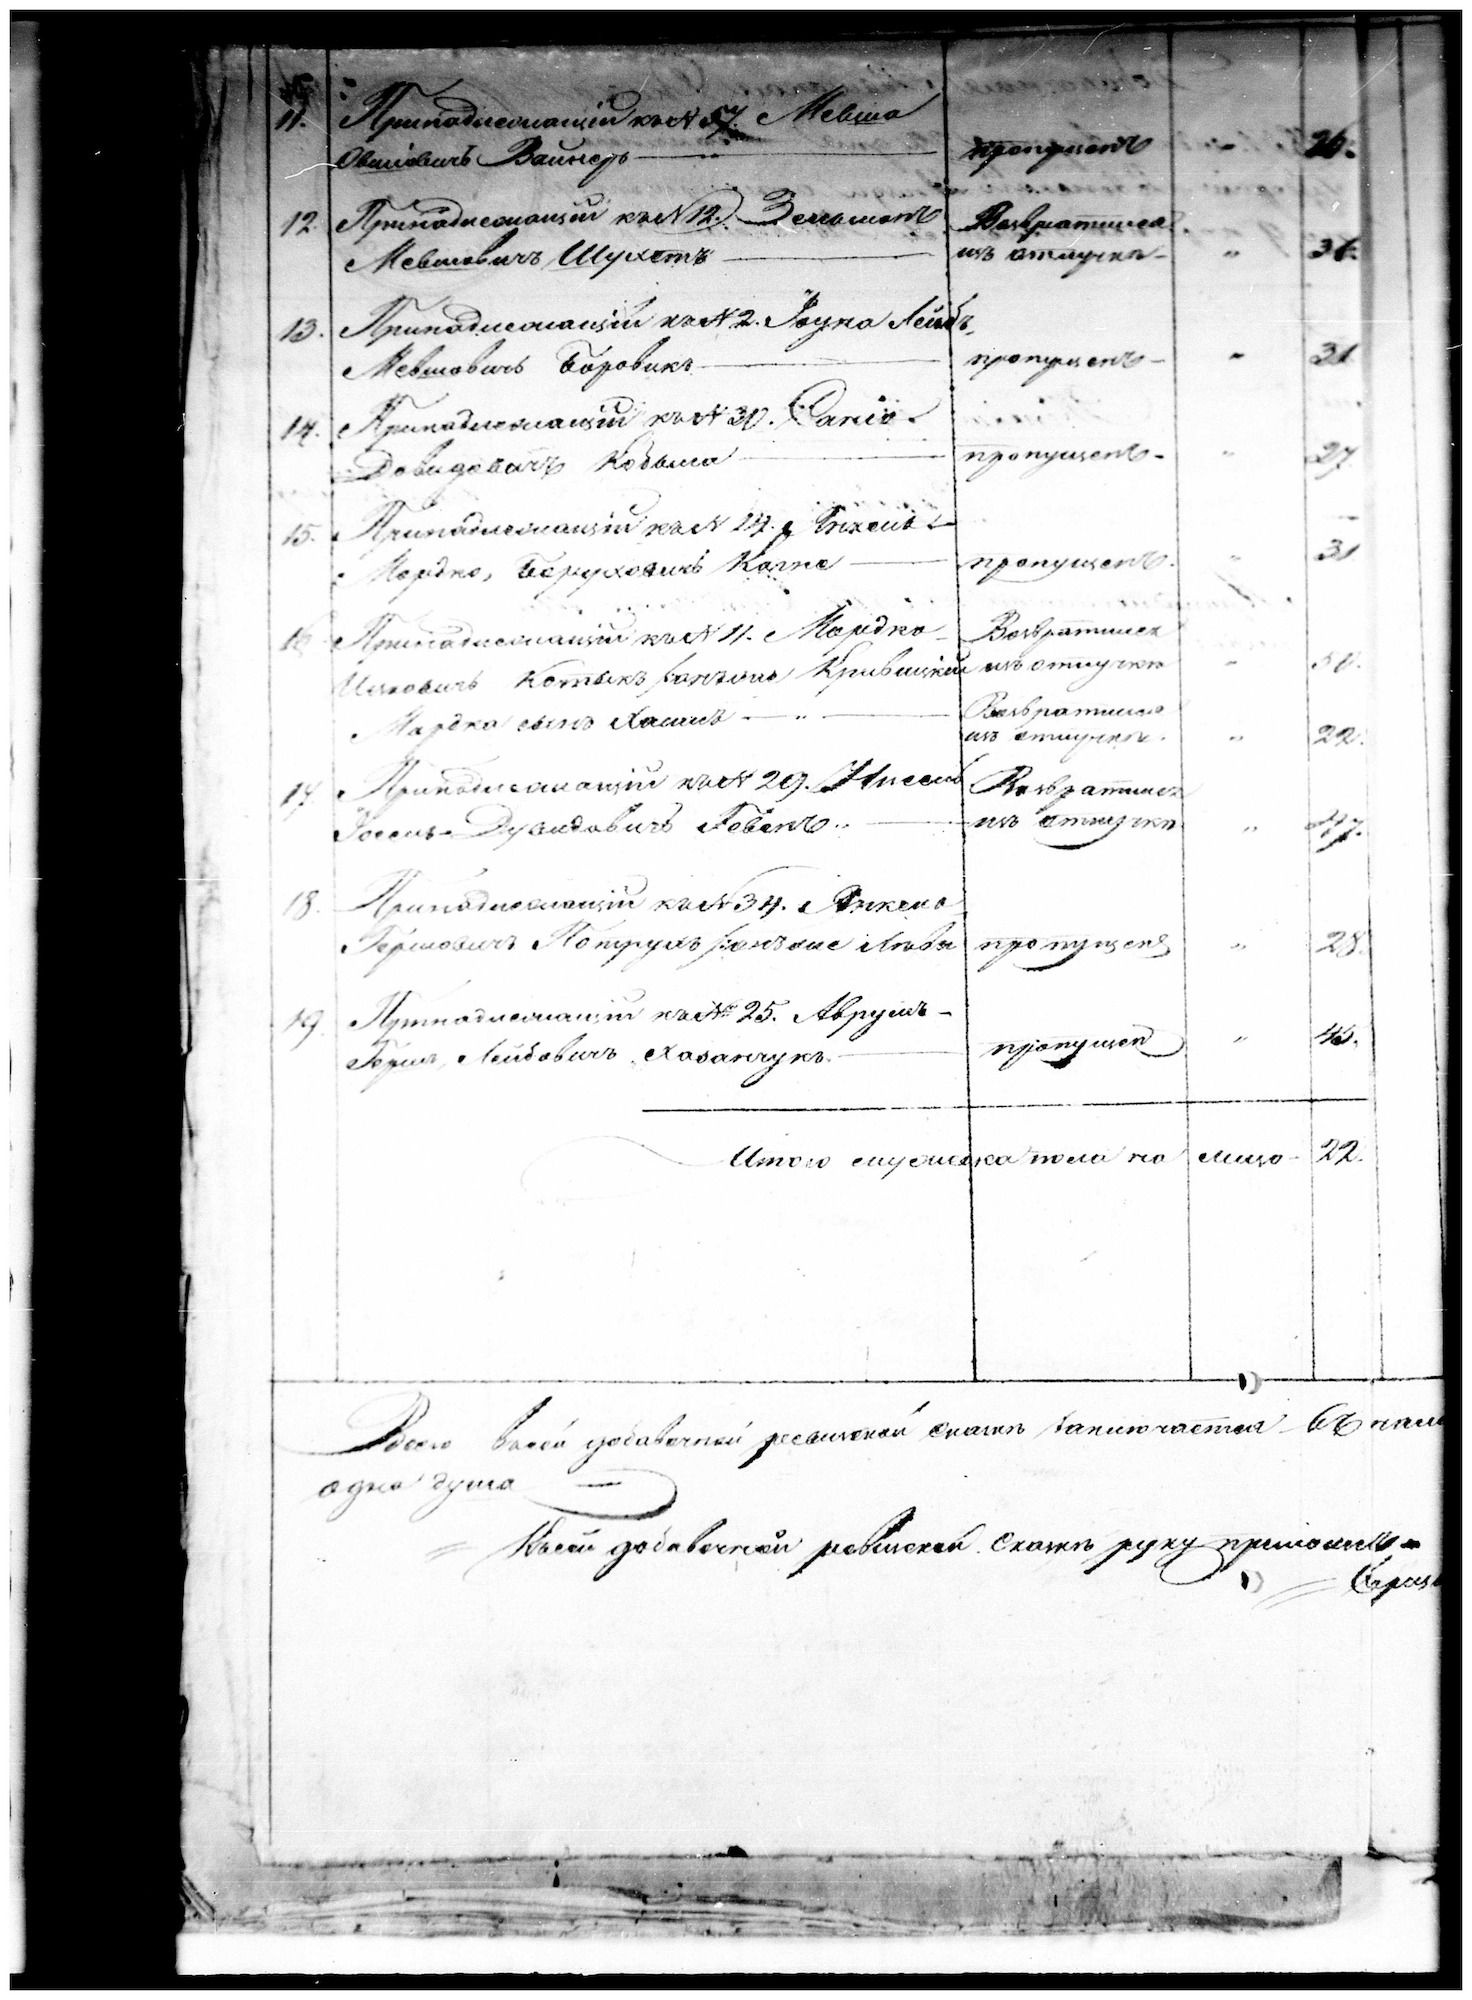 11. Принадлежащій къ № 57. Мевша
Овшіовичъ Вайнеръ — пропущенъ " 26.
12. Принадлежащій къ № 12. Зельманъ Возвратился
Мевшовичъ Шухетъ — изъ отлучки " 36.
13. Принадлежащій къ № 2. Іоуна Лейбъ,
Мевшовичъ Боровикъ — пропущенъ " 31
14. Принадлежащій къ № 30.
Довидовичъ Кобыла — пропущенъ " 27
15. Принадлежащій къ № 14. Янкель
Мордко, Боруховичъ — пропущенъ " 31
16. Принадлежащій къ № 11. Мордко Возвратился
Ицковичъ Котыкъ Кривицкій изъ отлучки "
Мордка сынъ Хаимъ — " — Возвратился
изъ отлучки " 22.
17. Принадлежащій къ № 29. Нисель Возвратился
Іосель Дувидовичъ — изъ отлучки " 47.
18. Принадлежащій къ № 34. Янкель
Гершовичъ пропущенъ " 28.
19. Принадлежащій къ № 25. Аврумъ
Гершъ, Лейбовичъ Хазанчукъ — пропущенъ " 45.
Итого мужеска пола на лицо 22.
Всего въ сей добавочной ревизской сказкѣ заключается въ
одна душа
Къ сей добавочной ревизской сказкѣ руку приложилъ